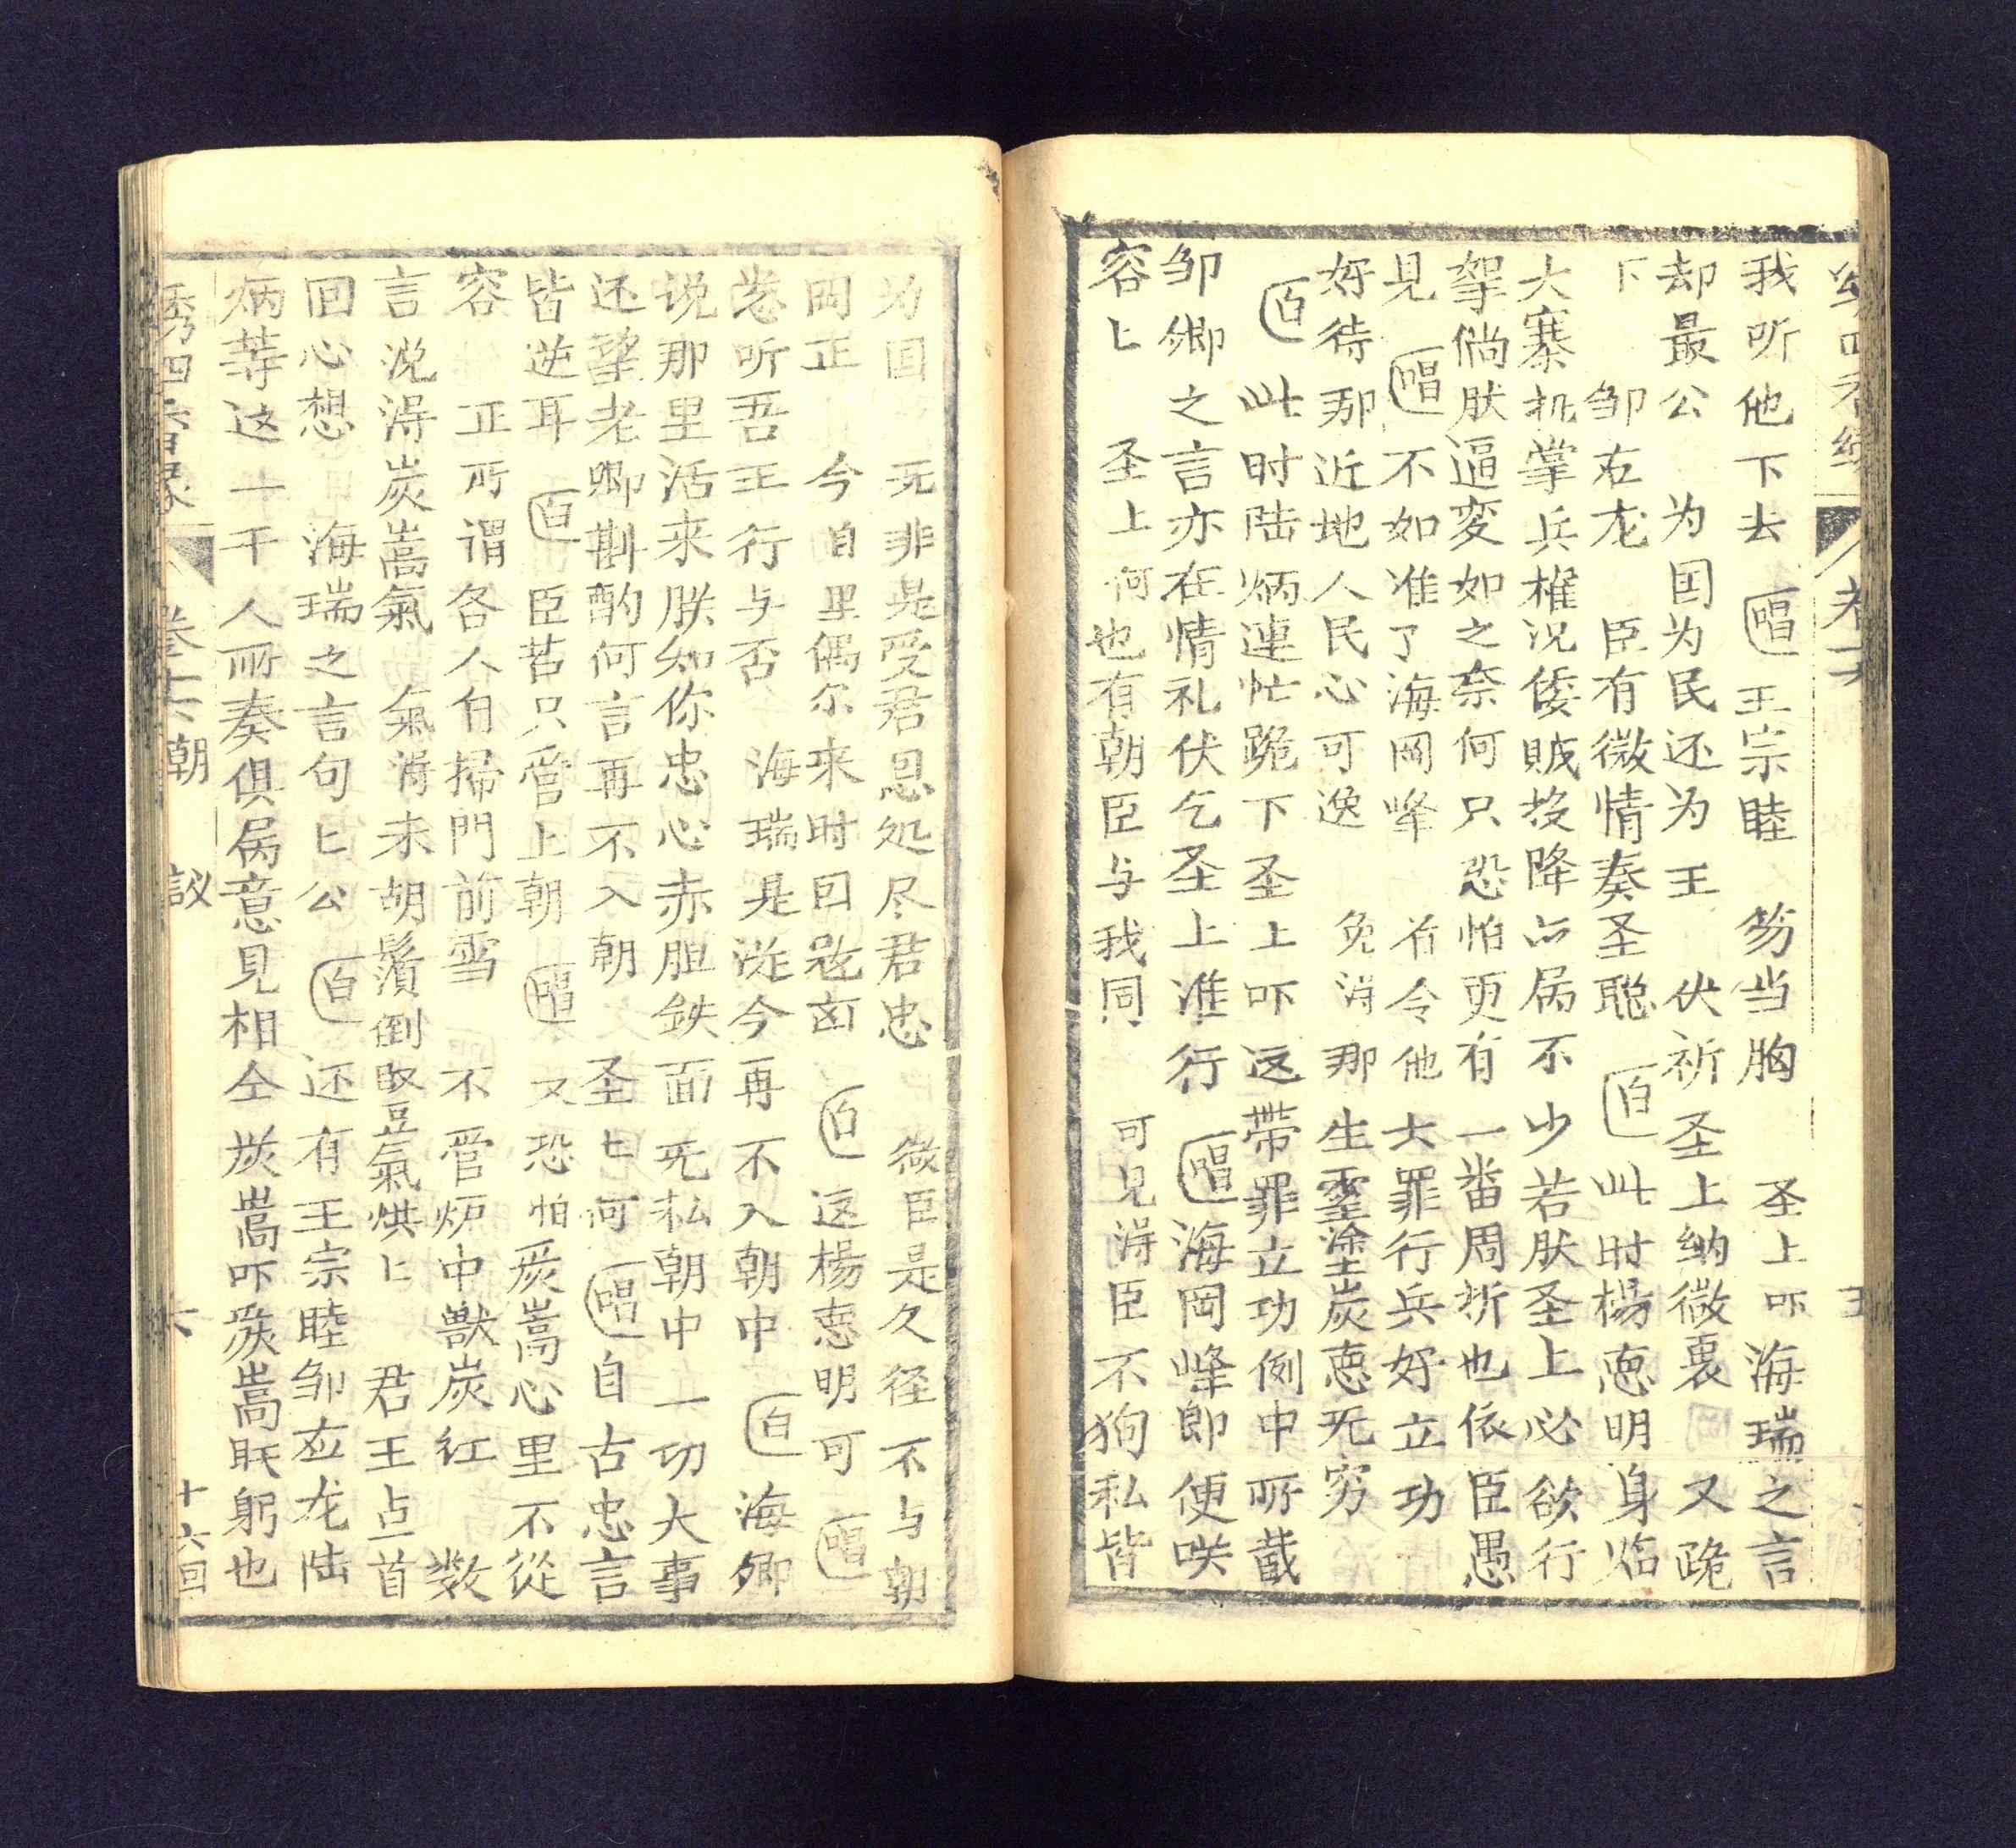 我听他下去 唱 王宗睦 笏当胸 圣上吓海瑞之言
却最公 为囯为民还为王 伏祈圣上纳微衷 又跪
下 邹右龙 臣有微情奏圣聪 白 此时楊悳明身沿
大寨机掌兵権况倭贼投降占居不少若朕圣上必欲行
挐倘朕逼変如之奈何只恐怕更有一番周折也依臣愚
見 唱 不如准了海岡峯 着令他 大罪行兵好立功
好待那近地人民心可逸 免消那 生霊塗炭悳无穷
白 此时陆炳連忙跪下圣上吓这帶罪立功例中所载
邹卿之言亦在情礼伏乞圣上准行 唱 海岡峰即便咲
容匕 圣上何也有朝臣与我同 可見淂臣不狥私皆
为囯 无非是受君恩处尽君忠 微臣是久径不与朝
岡正 今自里偶尔来时囬 白 这楊悳明可 唱
卷听吾正行与否 海瑞是从今再不入朝中 白 海卿
说那里活来朕知你忠心赤胆鉄面无私朝中一切大事
还望老卿斟酌何言再不入朝 圣匕何 唱 自古忠言
皆逆耳 白 臣苦只管上朝 唱 又恐怕 严嵩心里不從
容 正所谓各人自掃門前雪 不管炉中獣炭红 数
言说淂炭嵩氣 氣消未胡鬚倒竪氣烘匕 君王占首
囬心想 海瑞之言句匕公 白 还有王宗睦邹应龙陆
炳荨这一千人所奏俱居意見相仝炭嵩吓炭嵩眂躬也
绣四香缘 卷十六 朝 議 六 十六囬